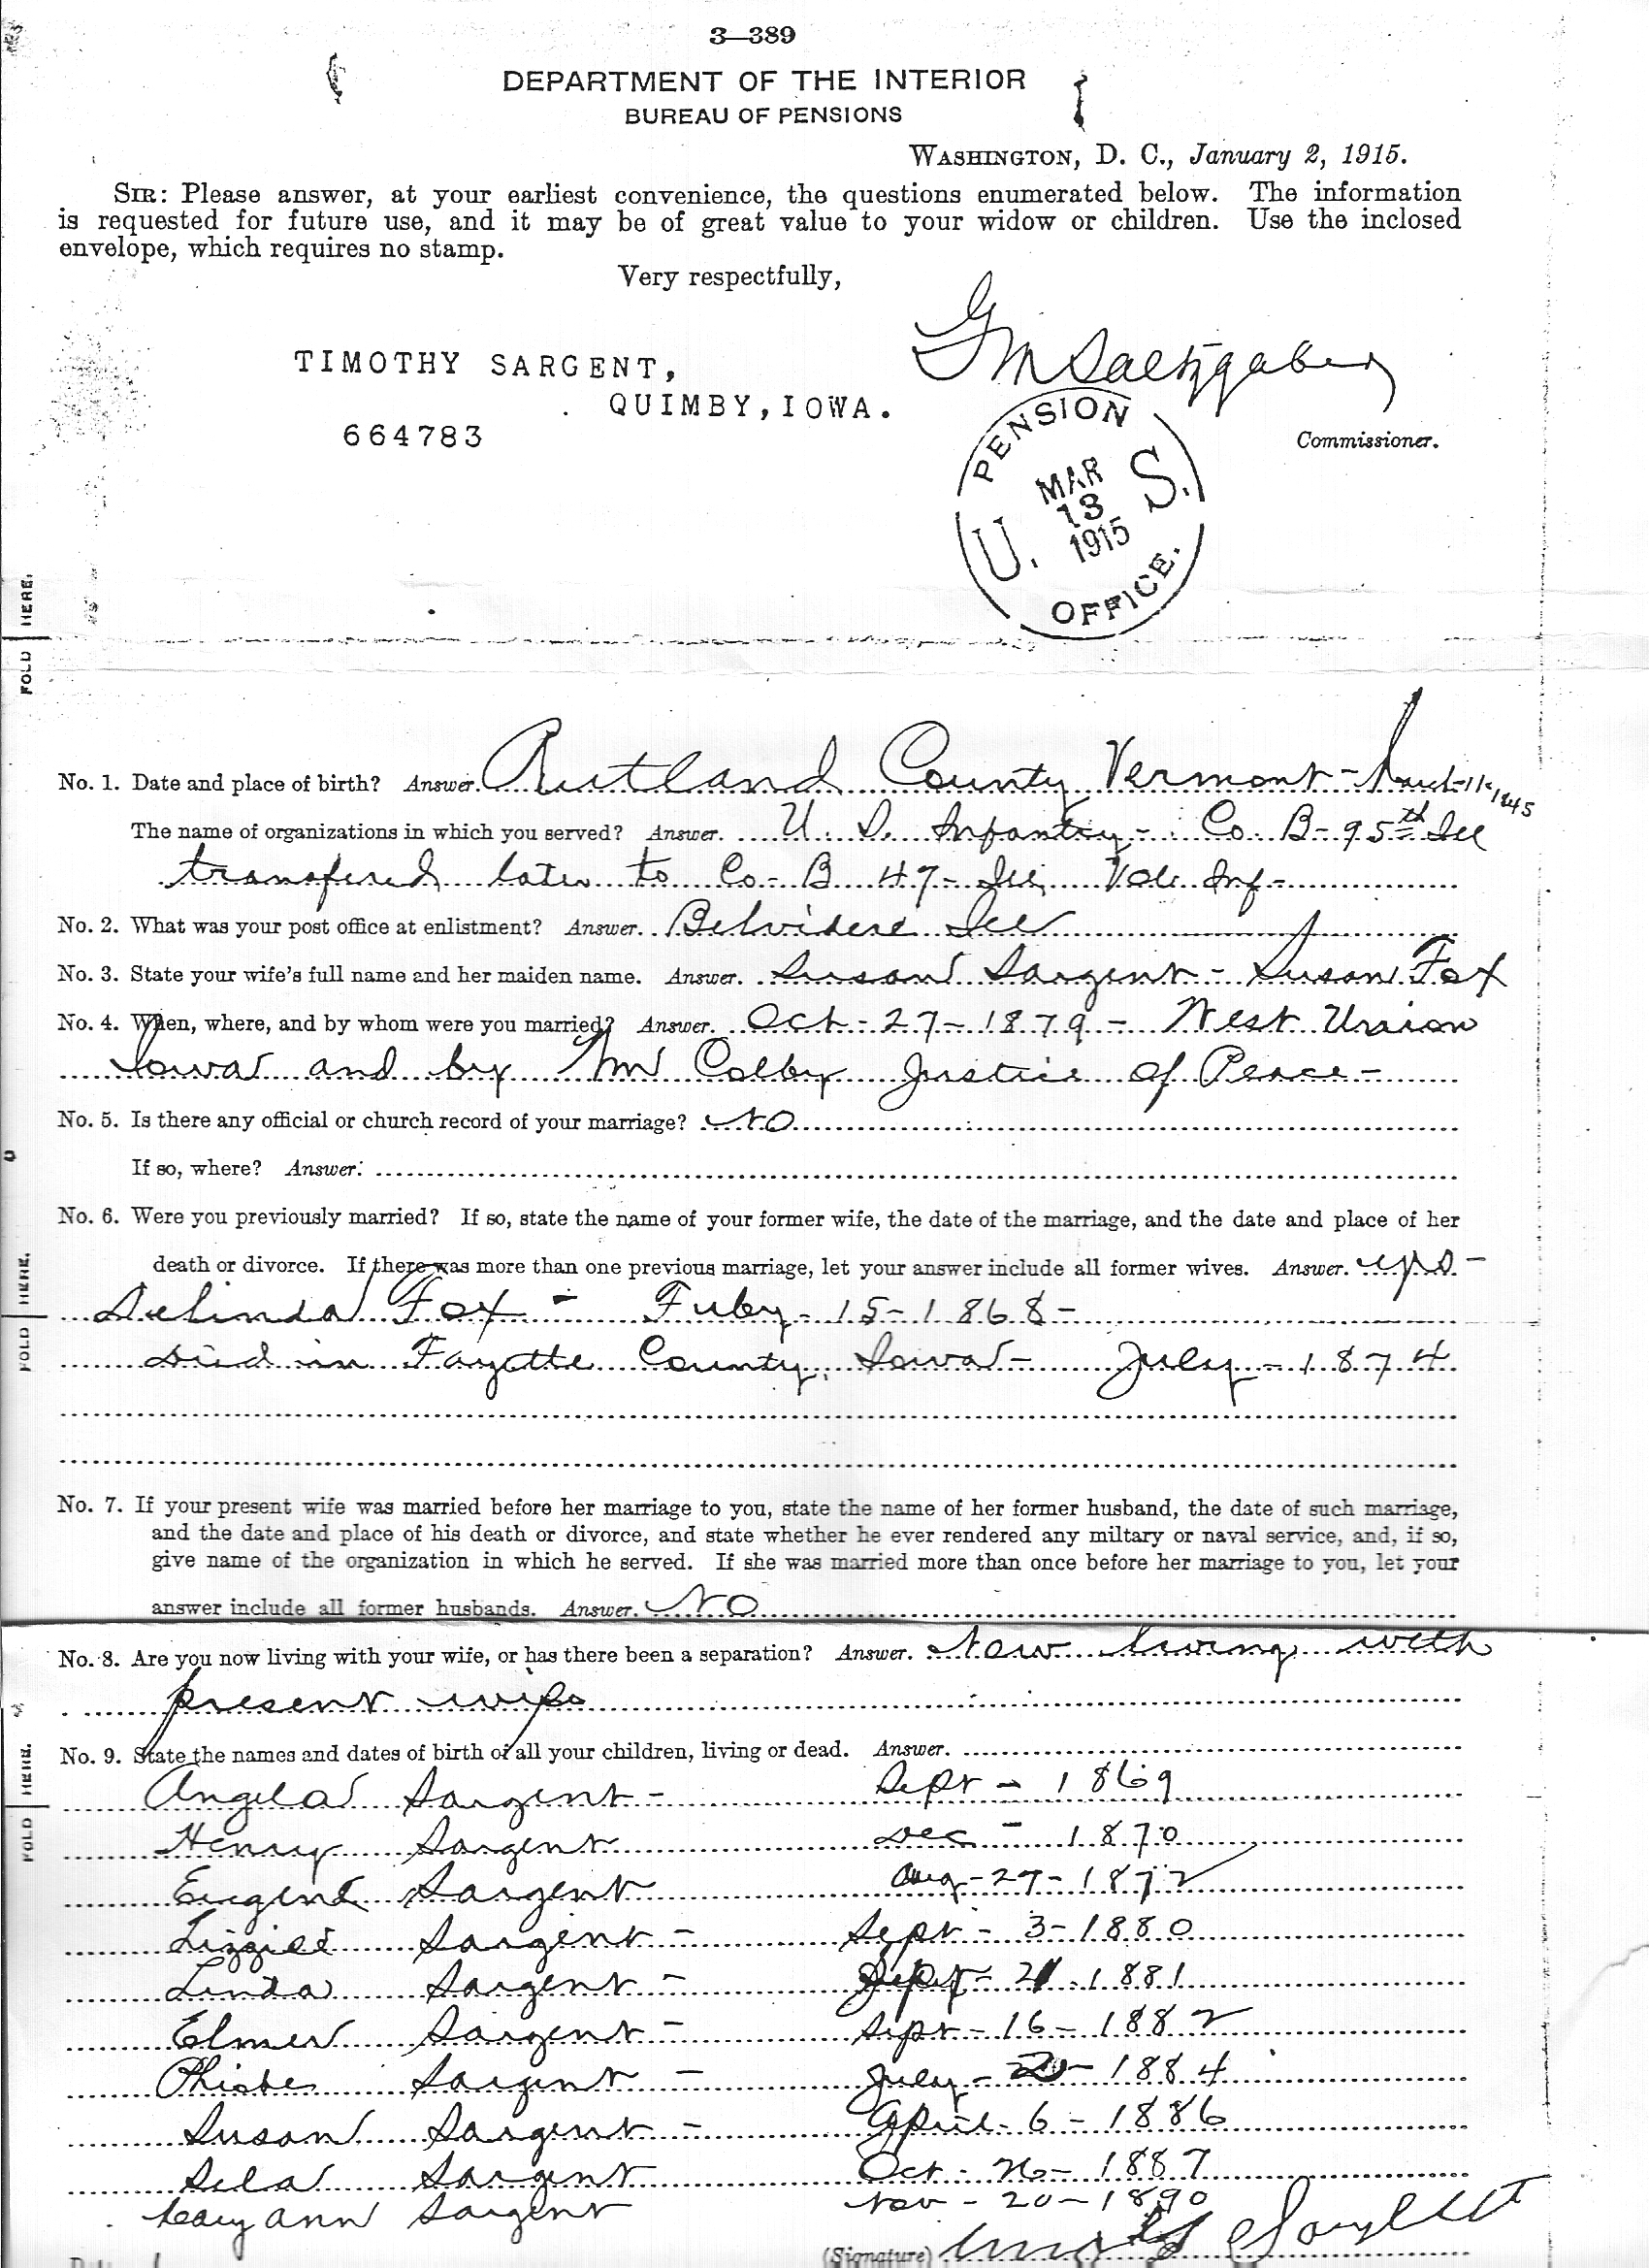 3—389
DEPARTMENT OF THE INTERIOR
BUREAU OF PENSIONS
WASHINGTON, D. C., January 2, 1915.
SIR: Please answer, at your earliest convenience, the questions enumerated below. The information
is requested for future use, and it may be of great value to your widow or children. Use the inclosed
envelope, which requires no stamp.
Very respectfully,
G M Saltzgaber
TIMOTHY SARGENT,
QUIMBY, IOWA.
664783
Commissioner.
PENSION OFFICE.
U. S.
MAR
13
1915
FOLD HERE.
No. 1. Date and place of birth? Answer. Rutland County Vermont - March 11 - 1845
The name of organizations in which you served? Answer. U. S. Infantry - Co. B - 95th Ill
transfered later to Co - B 47 - Ill, Vol. Inf -
No. 2. What was your post office at enlistment? Answer. Belvidere Ill
No. 3. State your wife's full name and her maiden name. Answer. Susan Sargent - Susan Fox
No. 4. When, where, and by whom were you married? Answer. Oct - 27 - 1879 - West Union
Iowa and by Mr Colby Justice of Peace -
No. 5. Is there any official or church record of your marriage? No
If so, where? Answer:
No. 6. Were you previously married? If so, state the name of your former wife, the date of the marriage, and the date and place of her
death or divorce. If there was more than one previous marriage, let your answer include all former wives. Answer. yes -
FOLD HERE.
Delinda Fox - Fuby - 15 - 1868 -
died in Fayette County, Iowa - July - 1874
No. 7. If your present wife was married before her marriage to you, state the name of her former husband, the date of such marriage,
and the date and place of his death or divorce, and state whether he ever rendered any miltary or naval service, and, if so,
give name of the organization in which he served. If she was married more than once before her marriage to you, let your
answer include all former husbands. Answer. No
No. 8. Are you now living with your wife, or has there been a separation? Answer. Now living with
present wife
No. 9. State the names and dates of birth of all your children, living or dead. Answer.
FOLD HERE.
Angela Sargent - Sept - 1869
Henry Sargent Dec - 1870
Eugene Sargent Aug - 27 - 1872
Lizzie Sargent - Sept - 3 - 1880
Linda Sargent - Sept - 21 - 1881
Elmer Sargent - Sept - 16 - 1882
Phiobe Sargent - July - 20 - 1884
Susan Sargent - April - 6 - 1886
Sargent Oct - 26 - 1887
Mary Ann Sargent Nov - 20 - 1890
(Signature) Sargent